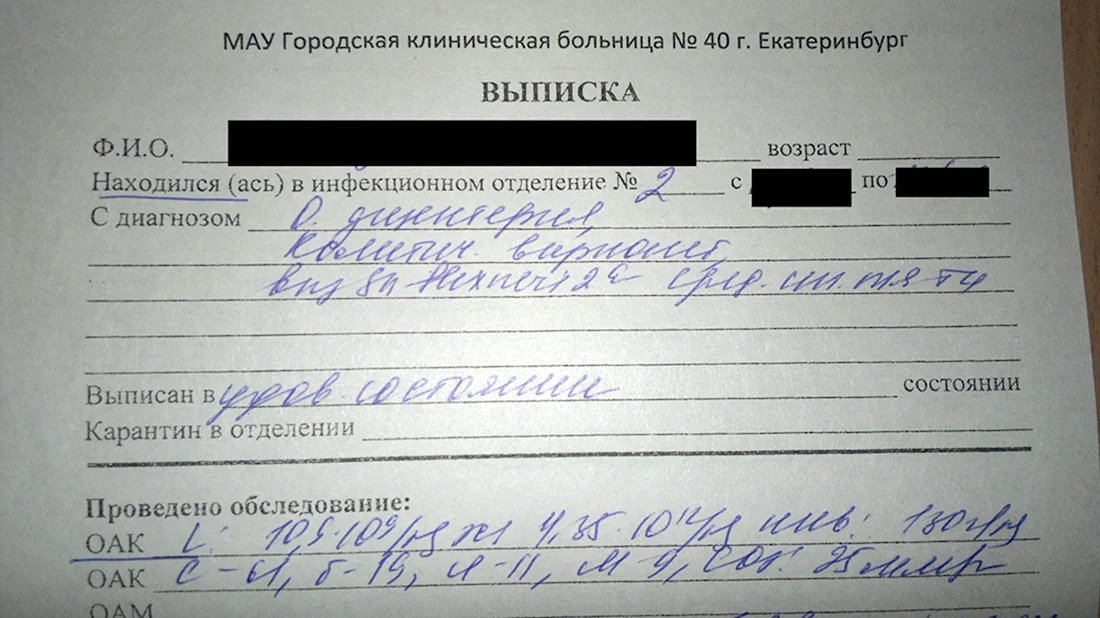 МАУ Городская клиническая больница № 40 г. Екатеринбург
ВЫПИСКА
Ф.И.О. возраст
Находился (ась) в инфекционном отделение № 2 с по
С диагнозом О. дизентерия,
Колитич. вариант,
ср. ст. тяжести
Выписан в удов состоянии состоянии
Карантин в отделении
Проведено обследование:
ОАК L: 10,9·10⁹/л 4,35·10¹²/л 130 г/л
ОАК с-61, б-19, л-11, м-9, СОЭ: 25 мм/ч
ОАМ